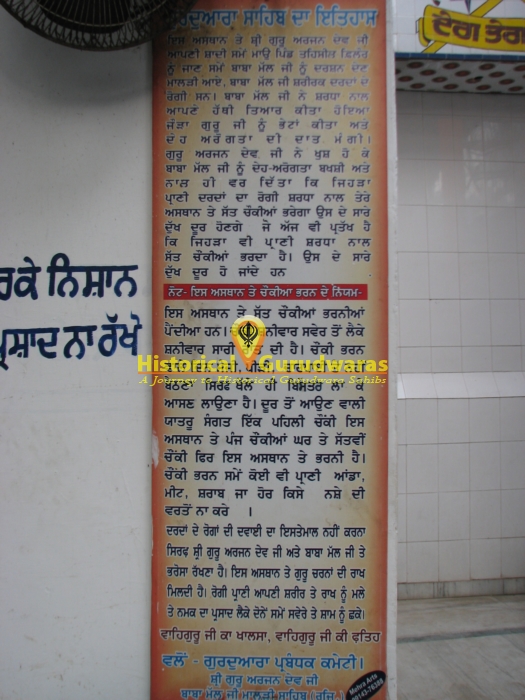 ਗੁਰਦੁਆਰਾ ਸਾਹਿਬ ਦਾ ਇਤਿਹਾਸ
ਇਸ ਅਸਥਾਨ ਤੇ ਸ਼੍ਰੀ ਗੁਰੂ ਅਰਜਨ ਦੇਵ ਜੀ
ਆਪਣੀ ਸ਼ਾਦੀ ਸਮੇਂ ਮਾਊ ਪਿੰਡ ਤਹਿਸੀਮ ਫਿਲੌਰ
ਨੂੰ ਜਾਣ ਸਮੇਂ ਬਾਬਾ ਮੱਲ ਜੀ ਨੂੰ ਦਰਸ਼ਨ ਦੇਣ
ਮਾਲੜੀ ਆਏ, ਬਾਬਾ ਮੱਲ ਜੀ ਸ਼ਰੀਰਕ ਦਰਦਾਂ ਦੇ
ਰੋਗੀ ਸਨ। ਬਾਬਾ ਮੱਲ ਜੀ ਨੇ ਸ਼ਰਧਾ ਨਾਲ
ਆਪਣੇ ਹੱਥੀ ਤਿਆਰ ਕੀਤਾ ਹੋਇਆ
ਜੋੜਾ ਗੁਰੂ ਜੀ ਨੂੰ ਭੇਟਾਂ ਕੀਤਾ ਅਤੇ
ਦੇਹ ਅਰੋਗਤਾ ਦੀ ਦਾਤ ਮੰਗੀ।
ਗੁਰੂ ਅਰਜਨ ਦੇਵ ਜੀ ਨੇ ਖੁਸ਼ ਹੋ ਕੇ
ਬਾਬਾ ਮੱਲ ਜੀ ਨੂੰ ਦੇਹ-ਅਰੋਗਤਾ ਬਖਸ਼ੀ ਅਤੇ
ਨਾਲ ਹੀ ਵਰ ਦਿੱਤਾ ਕਿ ਜਿਹੜਾ
ਪ੍ਰਾਣੀ ਦਰਦਾਂ ਦਾ ਰੋਗੀ ਸ਼ਰਧਾ ਨਾਲ ਤੇਰੇ
ਅਸਥਾਨ ਤੇ ਸੱਤ ਚੌਂਕੀਆਂ ਭਰੇਗਾ ਉਸ ਦੇ ਸਾਰੇ
ਦੁੱਖ ਦੂਰ ਹੋਣਗੇ ਜੋ ਅੱਜ ਵੀ ਪ੍ਰਤੱਖ ਹੈ
ਕਿ ਜਿਹੜਾ ਵੀ ਪ੍ਰਾਣੀ ਸ਼ਰਧਾ ਨਾਲ
ਸੱਤ ਚੌਂਕੀਆਂ ਭਰਦਾ ਹੈ। ਉਸ ਦੇ ਸਾਰੇ
ਦੁੱਖ ਦੂਰ ਹੋ ਜਾਂਦੇ ਹਨ
ਨੋਟ- ਇਸ ਅਸਥਾਨ ਤੇ ਚੌਕੀਆ ਭਰਨ ਦੇ ਨਿਯਮ-
ਇਸ ਅਸਥਾਨ ਤੇ ਸੱਤ ਚੌਂਕੀਆਂ ਭਰਨੀਆਂ
ਪੈਂਦੀਆ ਹਨ। ਸ਼ਨੀਵਾਰ ਸਵੇਰ ਤੋਂ ਲੈਕੇ
ਸ਼ਨੀਵਾਰ ਸਾਰੀ ਦੀ ਹੈ। ਚੌਂਕੀ ਭਰਨ
ਸਿਰਫ ਥੱਲੇ ਹੀ ਬਿਸਤਰ ਲਾ ਕੇ
ਆਸਣ ਲਾਉਣਾ ਹੈ। ਦੂਰ ਤੋਂ ਆਉਣ ਵਾਲੀ
ਯਾਤਰੂ ਸੰਗਤ ਇੱਕ ਪਹਿਲੀ ਚੌਂਕੀ ਇਸ
ਅਸਥਾਨ ਤੇ ਪੰਜ ਚੌਂਕੀਆਂ ਘਰ ਤੇ ਸੱਤਵੀਂ
ਚੌਂਕੀ ਫਿਰ ਇਸ ਅਸਥਾਨ ਤੇ ਭਰਨੀ ਹੈ।
ਚੌਂਕੀ ਭਰਨ ਸਮੇਂ ਕੋਈ ਵੀ ਪ੍ਰਾਣੀ ਆਂਡਾ,
ਮੀਟ, ਸ਼ਰਾਬ ਜਾ ਹੋਰ ਕਿਸੇ ਨਸ਼ੇ ਦੀ
ਵਰਤੋਂ ਨਾ ਕਰੇ ।
ਦਰਦਾਂ ਦੇ ਰੋਗਾਂ ਦੀ ਦਵਾਈ ਦਾ ਇਸਤੇਮਾਲ ਨਹੀਂ ਕਰਨਾ
ਸਿਰਫ ਸ਼੍ਰੀ ਗੁਰੂ ਅਰਜਨ ਦੇਵ ਜੀ ਅਤੇ ਬਾਬਾ ਮੱਲ ਜੀ ਤੇ
ਭਰੋਸਾ ਰੱਖਣਾ ਹੈ। ਇਸ ਅਸਥਾਨ ਤੇ ਗੁਰੂ ਚਰਨਾਂ ਦੀ ਰਾਖ
ਮਿਲਦੀ ਹੈ। ਰੋਗੀ ਪ੍ਰਾਣੀ ਆਪਣੀ ਸ਼ਰੀਰ ਤੇ ਰਾਖ ਨੂੰ ਮਲੇ
ਤੇ ਨਮਕ ਦਾ ਪ੍ਰਸਾਦ ਲੈਕੇ ਦੋਨੋਂ ਸਮੇਂ ਸਵੇਰੇ ਤੇ ਸ਼ਾਮ ਨੂੰ ਛਕੇ।
ਵਾਹਿਗੁਰੂ ਜੀ ਕਾ ਖਾਲਸਾ, ਵਾਹਿਗੁਰੂ ਜੀ ਕੀ ਫਤਿਹ
ਵਲੋਂ - ਗੁਰਦੁਆਰਾ ਪ੍ਰਬੰਧਕ ਕਮੇਟੀ।
ਸ਼੍ਰੀ ਗੁਰੂ ਅਰਜਨ ਦੇਵ ਜੀ
ਬਾਬਾ ਮੱਲ ਜੀ ਮਾਲੜੀ ਸਾਹਿਬ (ਰਜਿ.)
Mehra Arts
ਰਕੇ ਨਿਸ਼ਾਨ
ਪ੍ਰਸ਼ਾਦ ਨਾ ਰੱਖੋ
ਦੇਗ ਤੇਗ
Historical Gurudwaras
A Journey to Historical Gurudwara Sahibs